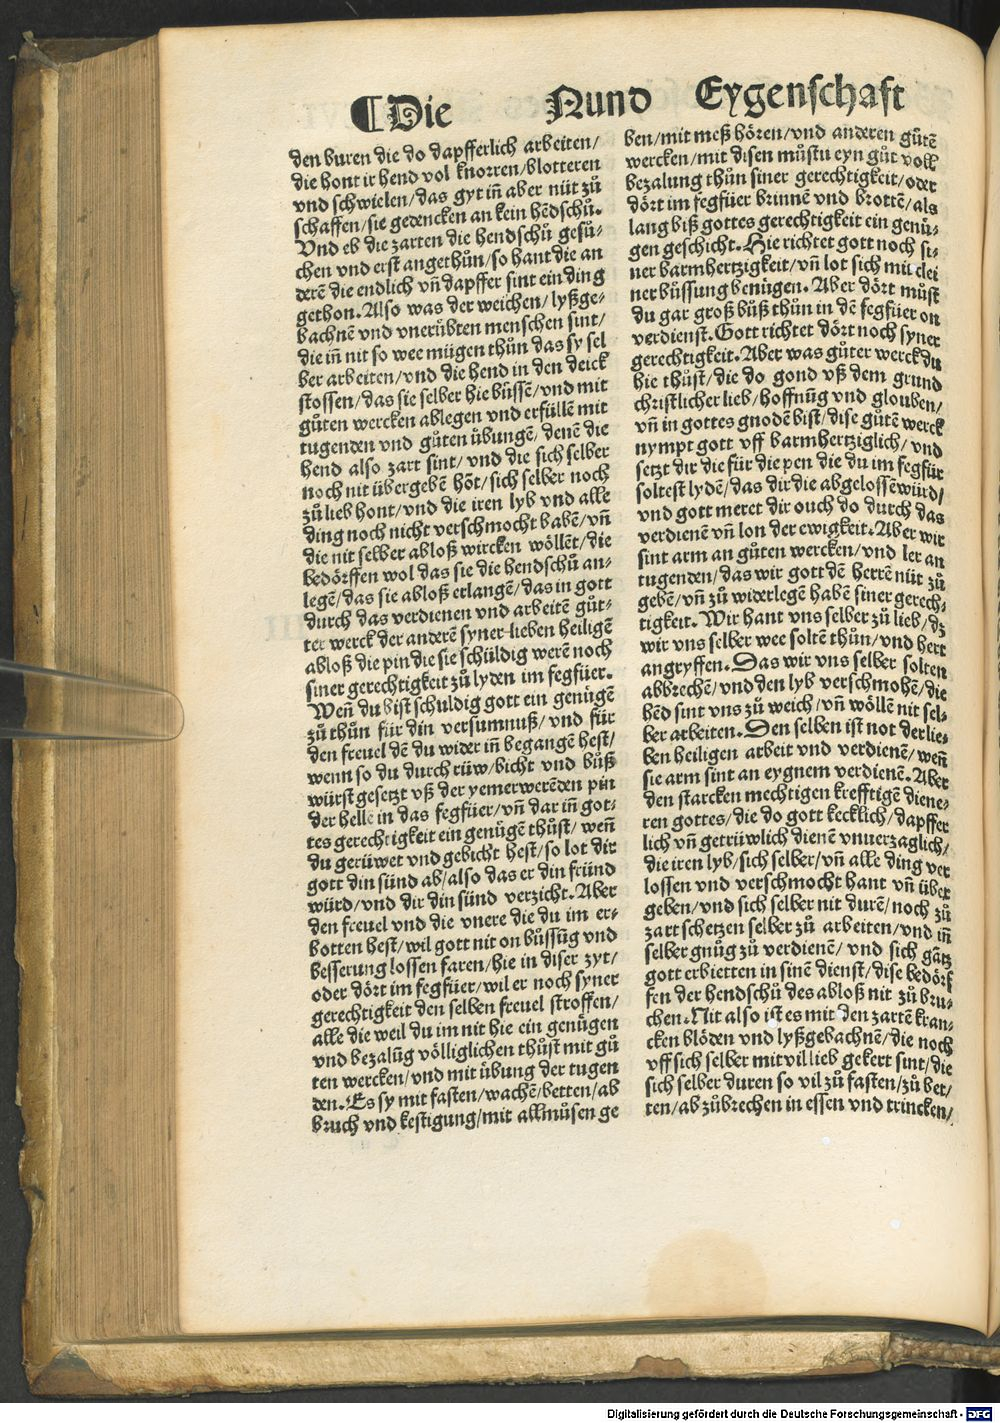 ¶Die Nund Eygenschafft
den buren die do dapfferlich arbeiten/
die hont ir hend vol knorren/blotteren
vnd schwielen/das gyt in̄ aber nüt zů
schaffen/sie gedencken an kein hēdschů.
Vnd eb die zarten die hendschů gesů-
chen vnd erst angethůn/so hant die an
derē die endlich vn̄ dapffer sint ein ding
gethon. Also was der weichen/lyßge-
bachnē vnd vnerübten menschen sint/
die in̄ nit so wee mügen thůn das sy sel
ber arbeiten/vnd die hend in den deick
stossen/das sie selber hie büssē/vnd mit
gůten wercken ablegen vnd erfüllē mit
tugenden vnd gůten übungē/denē die
hend also zart sint/vnd die sich selber
noch nit übergebē hōt/sich selber noch
zů lieb hont/vnd die iren lyb vnd alle
ding noch nicht verschmocht habē/vn̄
die nit selber abloß wircken wöllēt/die
bedörffen wol das sie die hendschů an-
legē/das sie abloß erlangē/das in gott
durch das verdienen vnd arbeitē gůt-
ter werck der anderē syner lieben heiligē
abloß die pin die sie schüldig werē noch
siner gerechtigkeit zů lyden im fegfüer.
Wen̄ du bist schuldig gott ein genügē
zů thůn für din versumnuß/vnd für
den freuel dē du wider in̄ begangē hest/
wenn so du durch rüw/bicht vnd bůß
würst gesetzt vß der yemerwerēden pin
der helle in das fegfüer/vn̄ dar in̄ got-
tes gerechtigkeit ein genügē thůst/wen̄
du gerüwet vnd gebicht hest/so lot dir
gott din sünd ab/also das er din fründ
würd/vnd dir din sünd verzicht. Aber
den freuel vnd die vnere die du im er-
botten hest/wil gott nit on büssūg vnd
besserung lossen faren/hie in diser zyt/
oder dört im fegfüer/wil er noch syner
gerechtigkeit den selben freuel stroffen/
alle die weil du im nit hie ein genügen
vnd bezalūg völliglichen thůst mit gů
ten wercken/vnd mit übung der tugen
den. Es sy mit fasten/wachē/betten/ab
bruch vnd kestigung/mit allmůsen ge
ben/mit meß hören/vnd anderen gůtē
wercken/mit disen můstu eyn gůt voll
bezalung thůn siner gerechtigkeit/oder
dört im fegfüer brinnē vnd brottē/als
lang biß gottes gerechtigkeit ein genů-
gen geschicht. Hie richtet gott noch si-
ner barmhertzigkeit/vn̄ lot sich mit clei
ner büssung benügen. Aber dört můst
du gar groß bůß thůn in dē fegfüer on
verdienst. Gott richtet dört noch syner
gerechtigkeit. Aber was gůter werck du
hie thůst/die do gond vß dem grund
christlicher lieb/hoffnūg vnd glouben/
vn̄ in gottes gnodē bist/dise gůtē werck
nympt gott vff barmhertziglich/vnd
setzt dir die für die pen die du im fegfür
soltest lydē/das dir die abgelossē würd/
vnd gott meret dir ouch do durch das
verdienē vn̄ lon der ewigkeit. Aber wir
sint arm an gůten wercken/vnd ler an
tugenden/das wir gott dē herrē nüt zů
gebē/vn̄ zů widerlegē habē siner gerech-
tigkeit. Wir hant vns selber zů lieb/dz
wir vns selber wee soltē thůn/vnd hert
angryffen. Das wir vns selber solten
abbrechē/vnd den lyb verschmohē/die
hēd sint vns zů weich/vn̄ wöllē nit sel-
ber arbeiten. Den selben ist not der lie-
ben heiligen arbeit vnd verdienē/wen̄
sie arm sint an eygnem verdienē. Aber
den starcken mechtigen krefftigē diene-
ren gottes/die do gott kecklich/dapffer
lich vn̄ getrüwlich dienē vnuerzaglich/
die iren lyb/sich selber/vn̄ alle ding ver
lossen vnd verschmocht hant vn̄ über
geben/vnd sich selber nit durē/noch zů
zart schetzen selber zů arbeiten/vnd in̄
selber gnůg zů verdienē/vnd sich gātz
gott erbietten in sinē dienst/dise bedörf
fen der hendschů des abloß nit zů bru-
chen. Nit also ist es mit den zartē kran-
cken blöden vnd lyßgebachnē/die noch
vff sich selber mit vil lieb gekert sint/die
sich selber duren so vil zů fasten/zů bet-
ten/ab zůbrechen in essen vnd trincken/
Digitalisierung gefördert durch die Deutsche Forschungsgemeinschaft - DFG